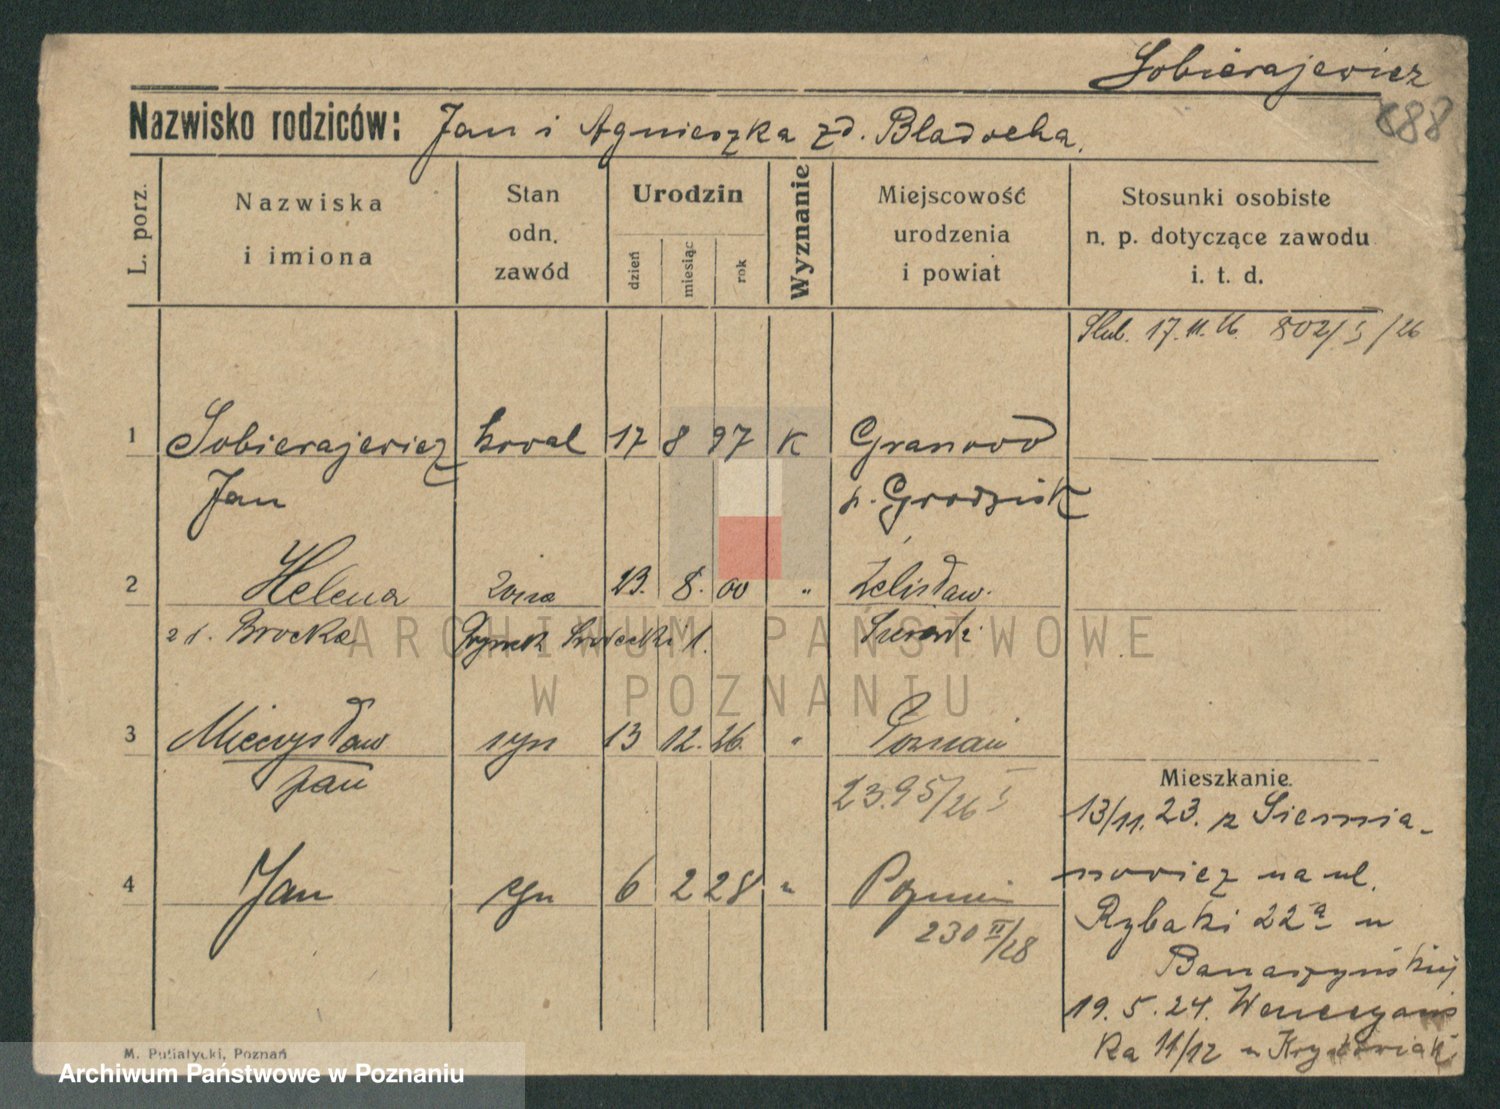 Sobierajewicz
888
Nazwisko rodziców: Jan i Agnieszka zd. Bladocha.
L. porz.
Nazwiska
i imiona
Stan
odn.
zawód
Urodzin
dzień
miesiąc
rok
Wyznanie
Miejscowość
urodzenia
i powiat
Stosunki osobiste
n. p. dotyczące zawodu
i. t. d.
Ślub. 17.11.26. 802/I/26
1 Sobierajewicz kowal 17 8 97 K Granowo
Jan p. Grodzisk
2 Helena żona 23. 8. 00 " Żelisław.
zd. Brocka Sieradz
3 Mieczysław syn 13 12. 26. " Poznań
Jan 2395/26 I
Mieszkanie.
13/11. 23. z Siemia-
nowicz na ul.
4 Jan syn 6 2 28 " Poznań
230 II/28
Rybaki 22a u
Banaszyńskiej
19. 5. 24. Wenecjańs
ka 11/12 u
M. Putiatycki, Poznań
ARCHIWUM PAŃSTWOWE
W POZNANIU
Archiwum Państwowe w Poznaniu